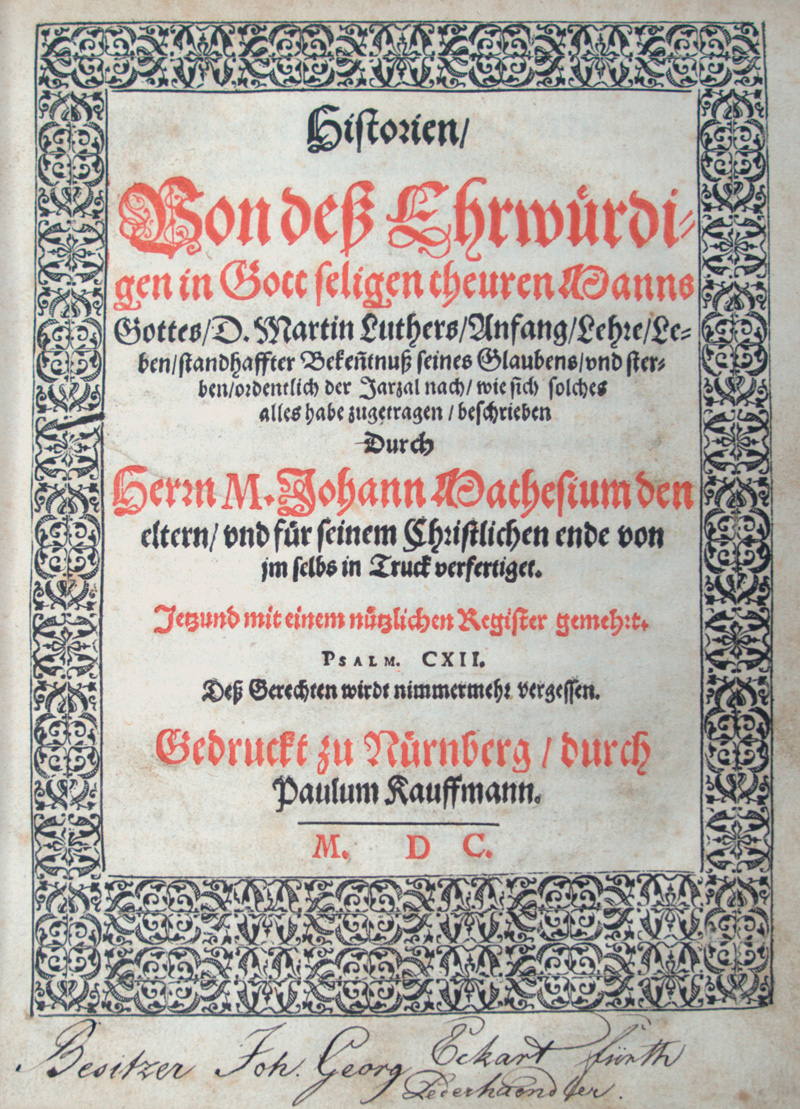 Historien/
Von deß Ehrwürdi-
gen in Gott seligen theuren Manns
Gottes/D. Martin Luthers/Anfang/Lehre/Le-
ben/standhaffter Bekeñtnuß seines Glaubens/vnd ster-
ben/ordentlich der Jarzal nach/wie sich solches
alles habe zugetragen/beschrieben
Durch
Herrn M. Johann Mathesium den
eltern/vnd für seinem Christlichen ende von
jm selbs in Truck verfertiget.
Jetzund mit einem nützlichen Register gemehrt.
PSALM. CXII.
Deß Gerechten wirdt nimmermehr vergessen.
Gedruckt zu Nürnberg/durch
Paulum Kauffmann.
M. D C.
Besitzer Joh. Georg Eckart fürth
Lederhaendler.